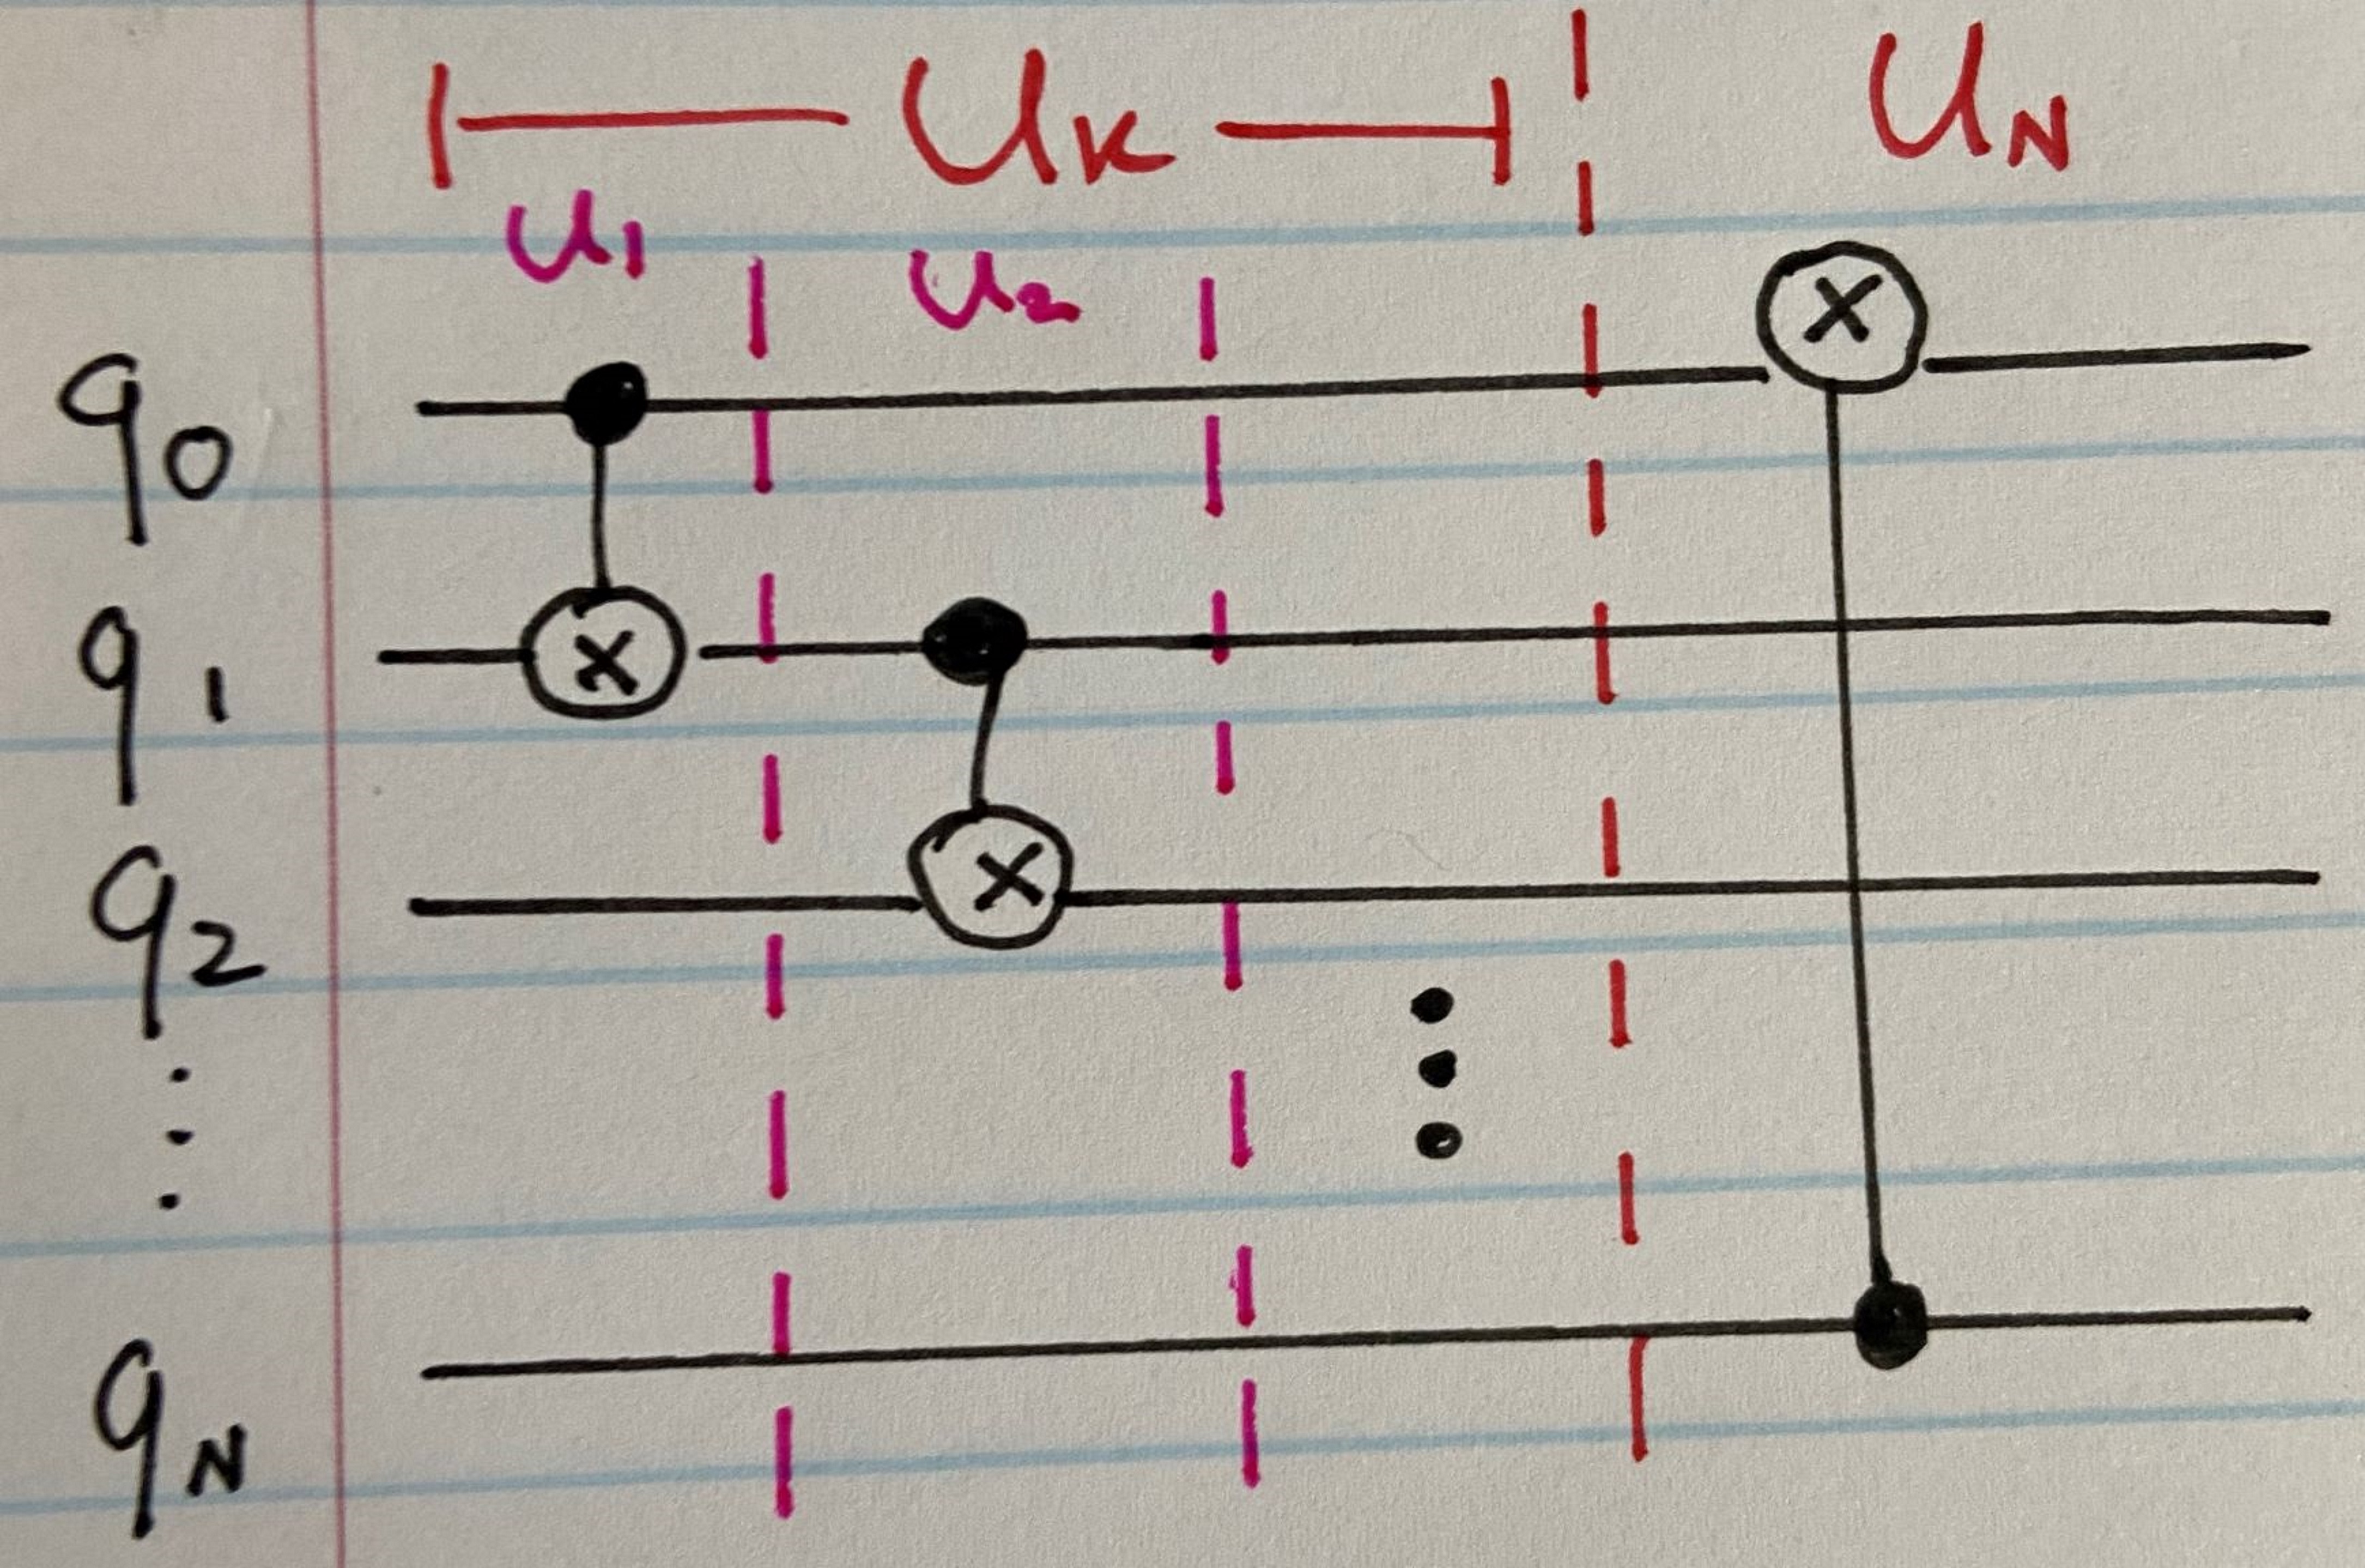 U_K U_N
U_1 U_2
q_0
q_1
q_2
q_N